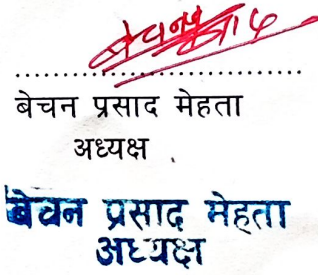 ..............................................
बेचन प्रसाद मेहता
अध्यक्ष
बेचन प्रसाद मेहता
अध्यक्ष